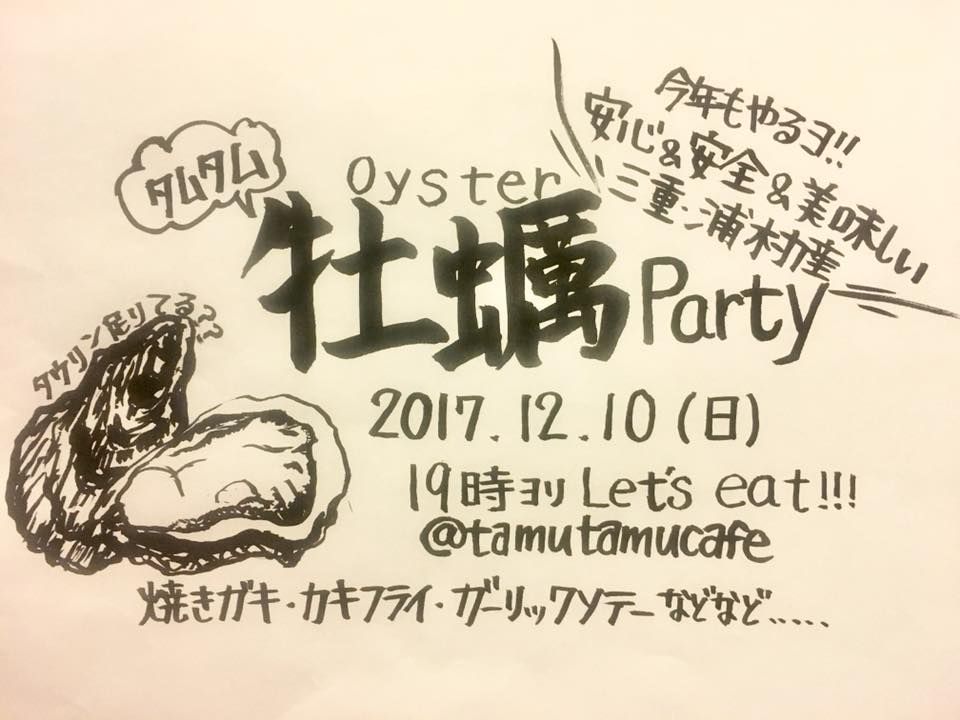 今年もやるヨ!!
安心&安全&美味しい
三重・浦村産
タムタム
Oyster
牡蠣
Party
タウリン足りてる??
2017.12.10(日)
19時ヨリ Let's eat!!!
@tamutamucafe
焼きガキ・カキフライ・ガーリックソテーなどなど.....